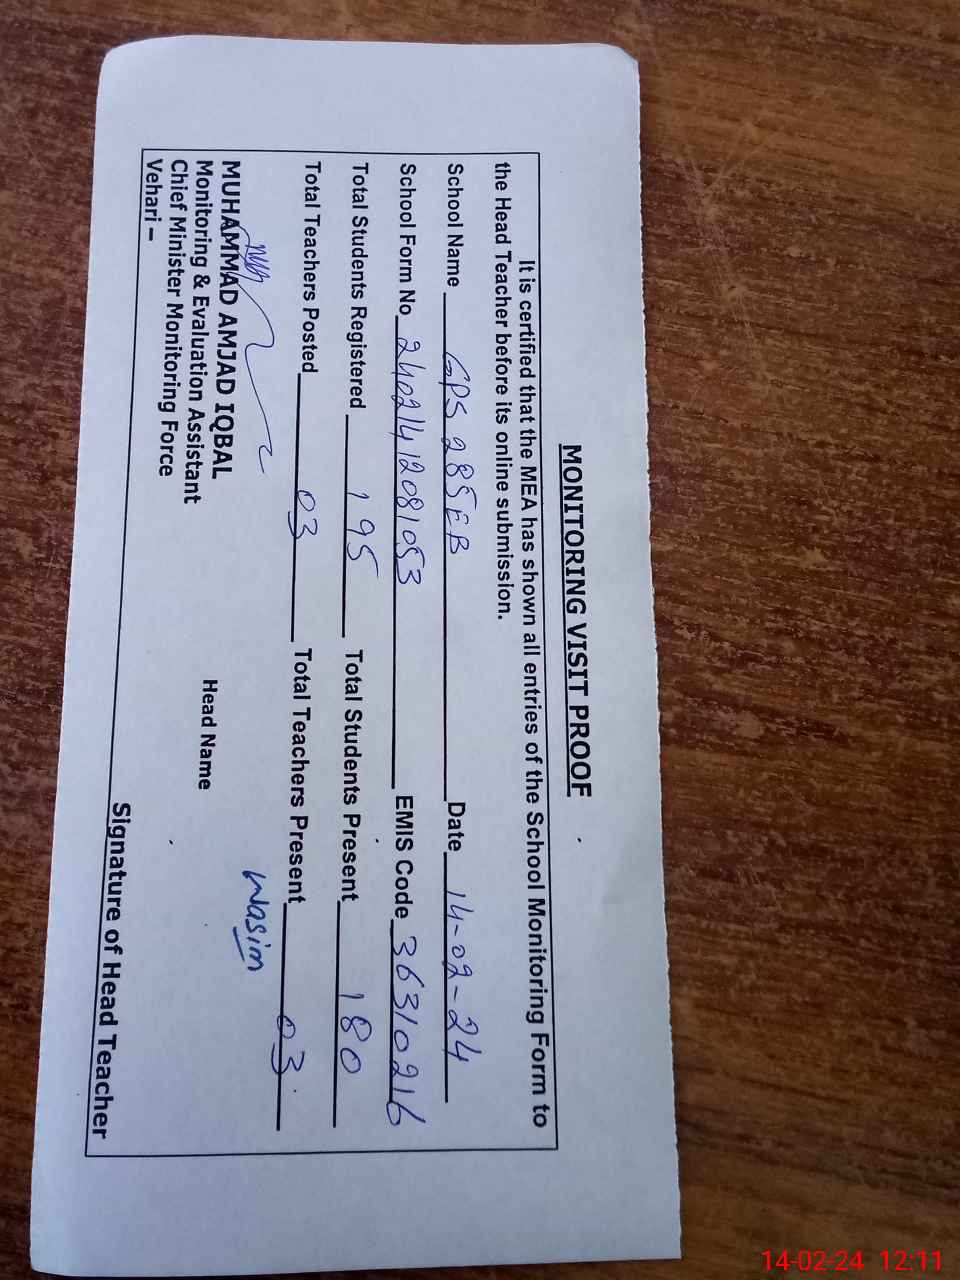 MONITORING VISIT PROOF
It is certified that the MEA has shown all entries of the School Monitoring Form to
the Head Teacher before its online submission.
School Name GPS 285EB Date 14-02-24
School Form No 240214120811053 EMIS Code 36310216
Total Students Registered 195 Total Students Present 180
Total Teachers Posted 03 Total Teachers Present 03
Wasim
MUHAMMAD AMJAD IQBAL
Monitoring & Evaluation Assistant Head Name
Chief Minister Monitoring Force
Vehari –
Signature of Head Teacher
14-02-24 12:11